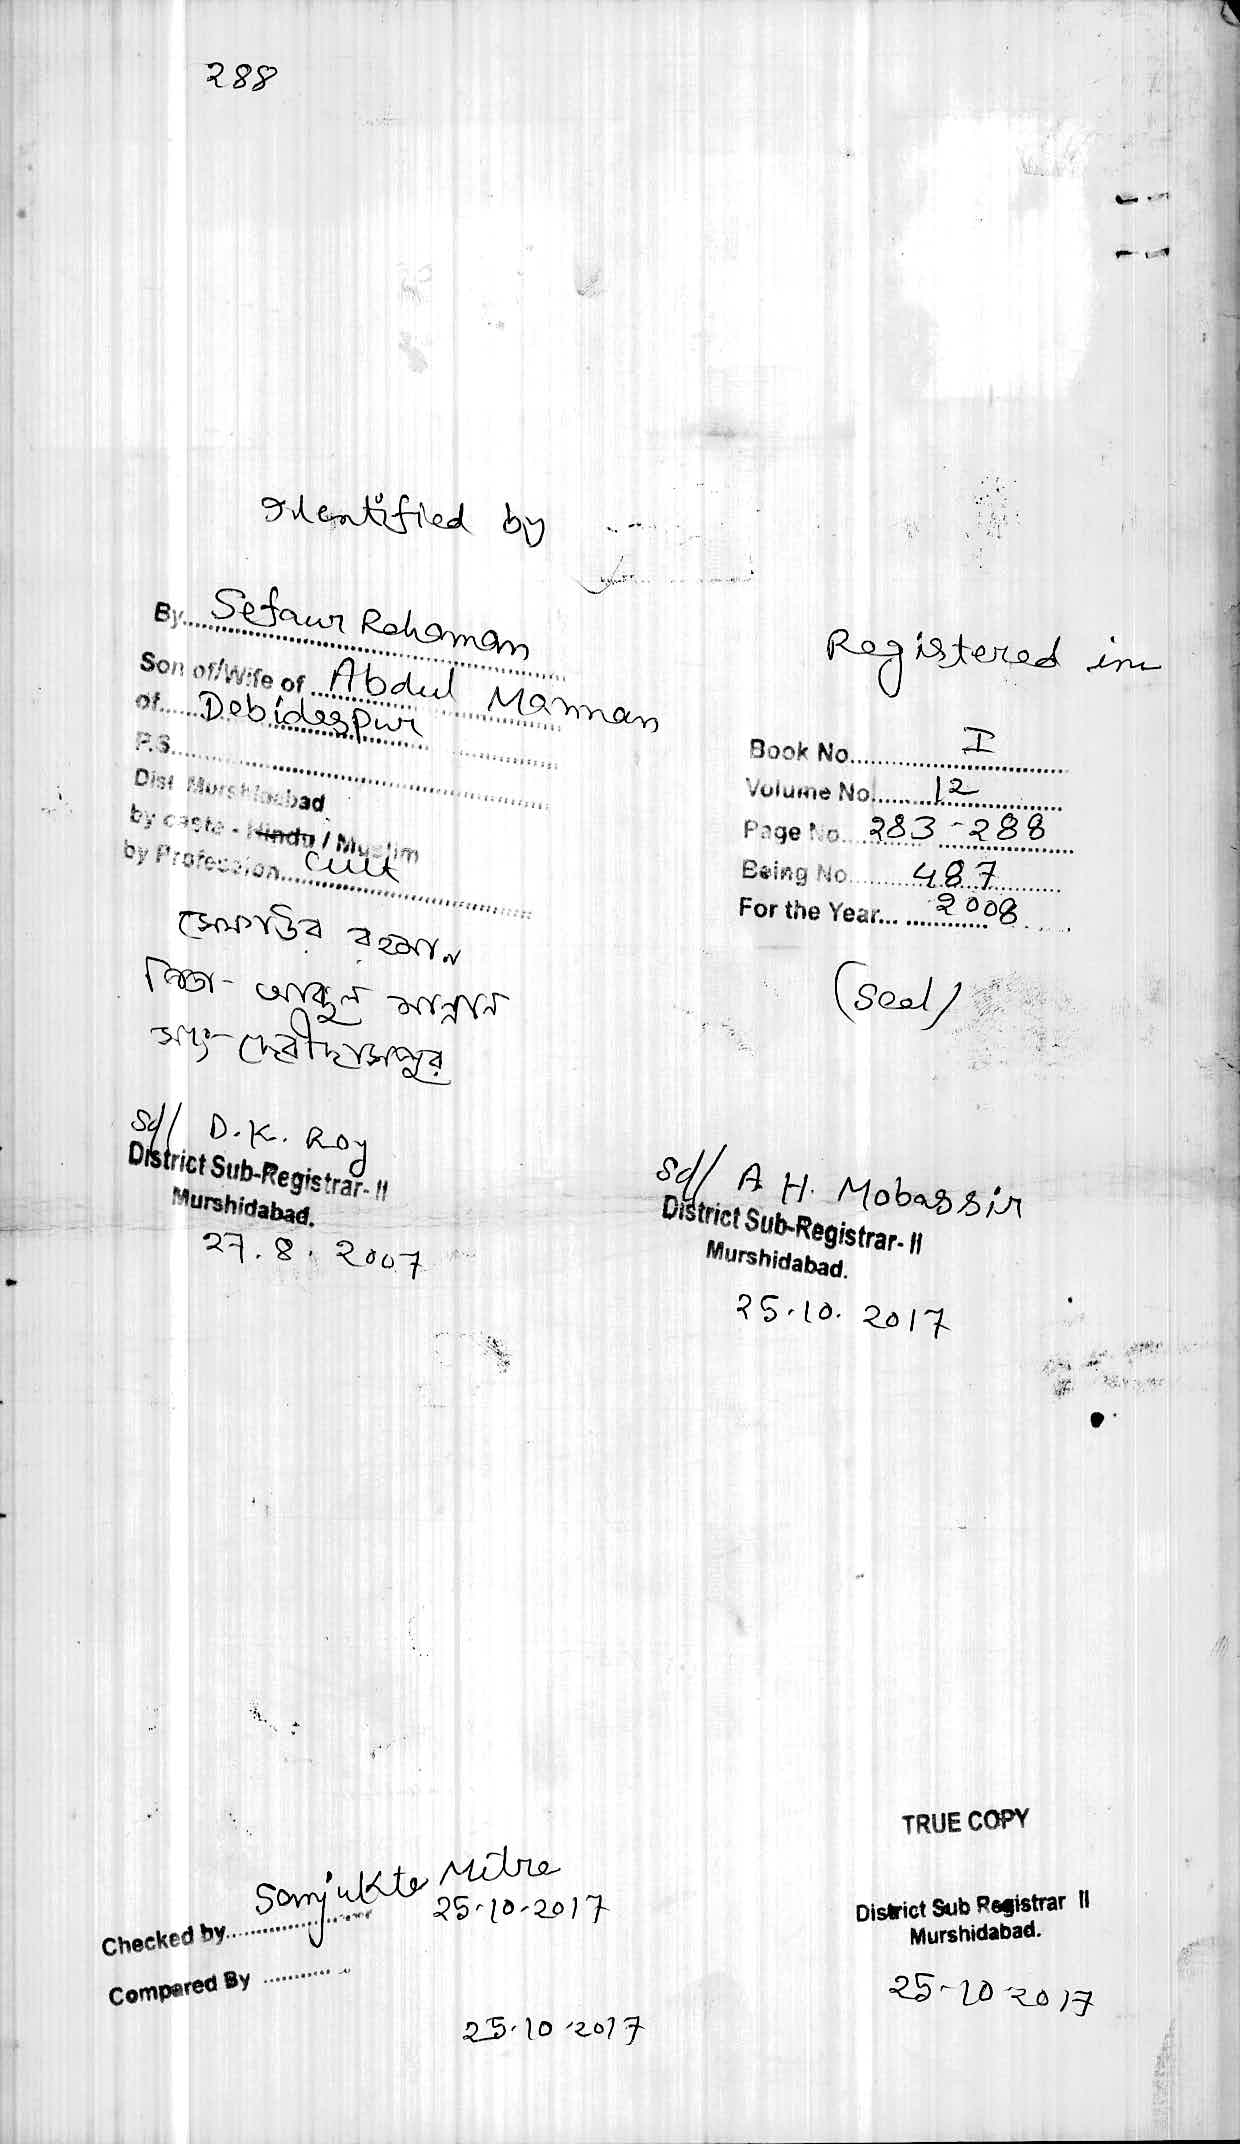 288
Identified by
By Sefaur Rahaman
Son of/Wife of Abdul Mannan
of Debidaspur
P.S.
Dist Murshidabad
by caste - Hindu / Muslim
by Profession Cult
সেফাউর রহমান
পিতা- আব্দুল মান্নান
সাং- দেবীদাসপুর
Sd/ D.K. Roy
District Sub-Registrar- II
Murshidabad.
27.8.2007
Registered in
Book No. I
Volume No. 12
Page No. 283-288
Being No. 487
For the Year... 2008
(Seal)
Sd/ A H. Mobassir
District Sub-Registrar- II
Murshidabad.
25.10.2017
Sanjukta Mitra
Checked by 25-10-2017
Compared By
25.10.2017
TRUE COPY
District Sub Registrar II
Murshidabad.
25-10-2017